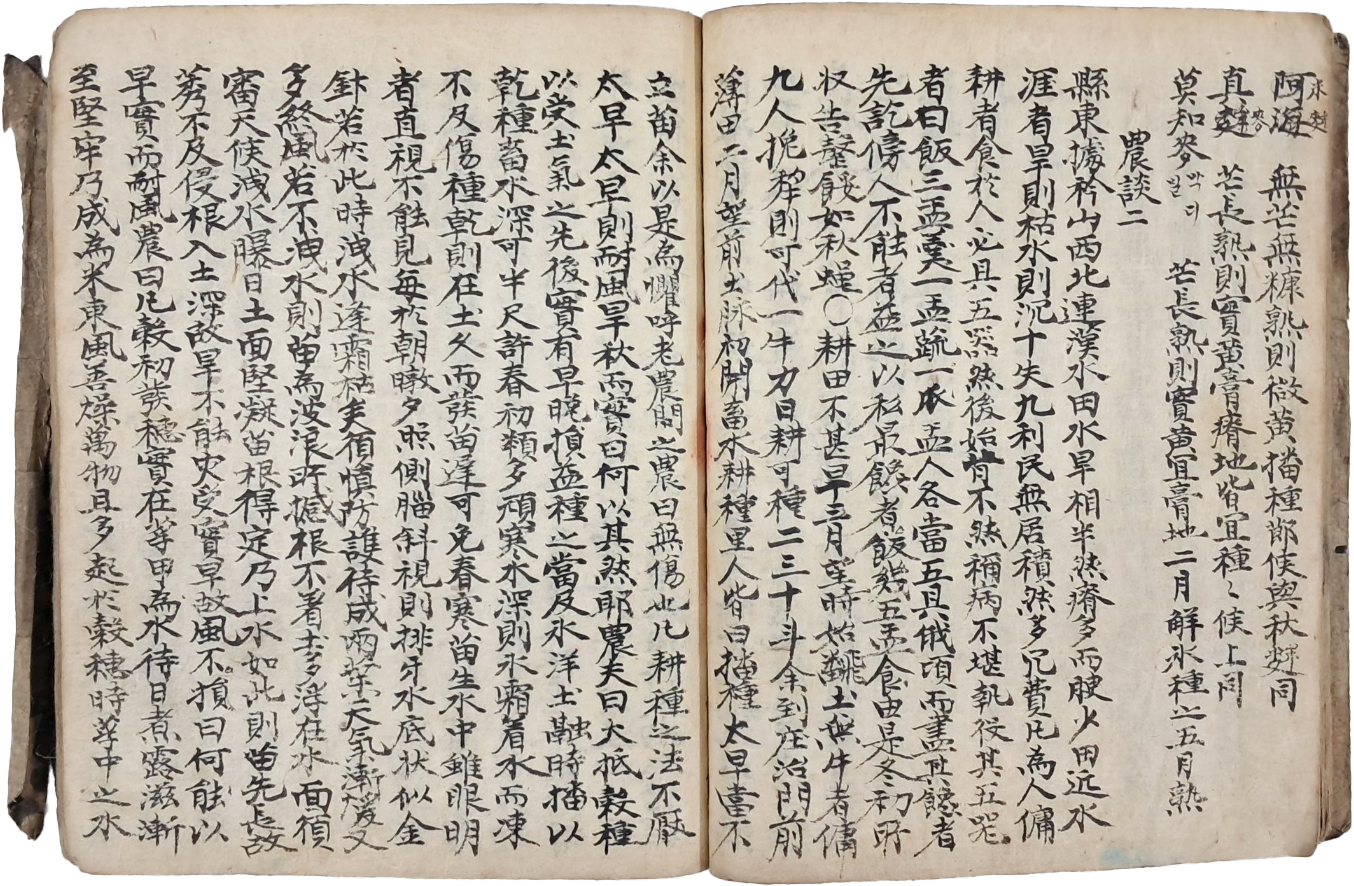 阿海 無芒無糠熟則微黄播種節候與秋麰同
真麰 芒長熟則實黄膏瘠地皆宜種々候上同
莫知麥 芒長熟則實黄宜膏地二月解氷種之五月熟
農談二
縣東據衿山西北連漢水田水旱相半然瘠多而腴少田近水
涯者旱則枯水則沉十失九利民無居積然多冗費凡為人傭
耕者食於人必具五器然後始肯不然稱病不堪執役其五器
者曰飯三盂羹一盂蔬一瓜盂人各當五具俄頃而盡且饞者
先訖傍人不能者益之以私最饞者飯幾五盂食由是冬初所
収告罄餒如秋蝗〇耕田不甚早三月望時始飜土無牛者傭
九人挽犂則可代一牛力日耕可種二三十斗余到庄治門前
薄田二月望前土脉初開畜水耕種里人皆曰播種太早當不
立苗余以是為懼呼老農問之農曰無傷也凡耕種之法不厭
太早太早則耐風旱秋而實曰何以其然耶農夫曰大抵穀種
以受土氣之先後實有早晩損益種之當及氷泮土融時播以
乾種畜水深可半尺許春初類多頑寒水深則氷霜着水而凍
不及傷種乾則在土久而發苗遲可免春寒苗生水中雖眼明
者直視不能見每於朝暾夕照側腦斜視則排牙水底状似金
針若於此時洩水逢霜枯矣須慎防護待成兩葉天氣漸煖又
多終風若不洩水則苗為波浪所撼根不着土多浮在水面須
審天候洩水曝日土面堅凝苗根得定乃上水如此則苗先長故
莠不及侵根入土深故旱不能灾受實早故風不損曰何能以
早實而耐風農曰凡穀初發穗實在莩甲為水待日煮露滋漸
至堅牢乃成為米東風善燥萬物且多起於穀穗時莩中之水